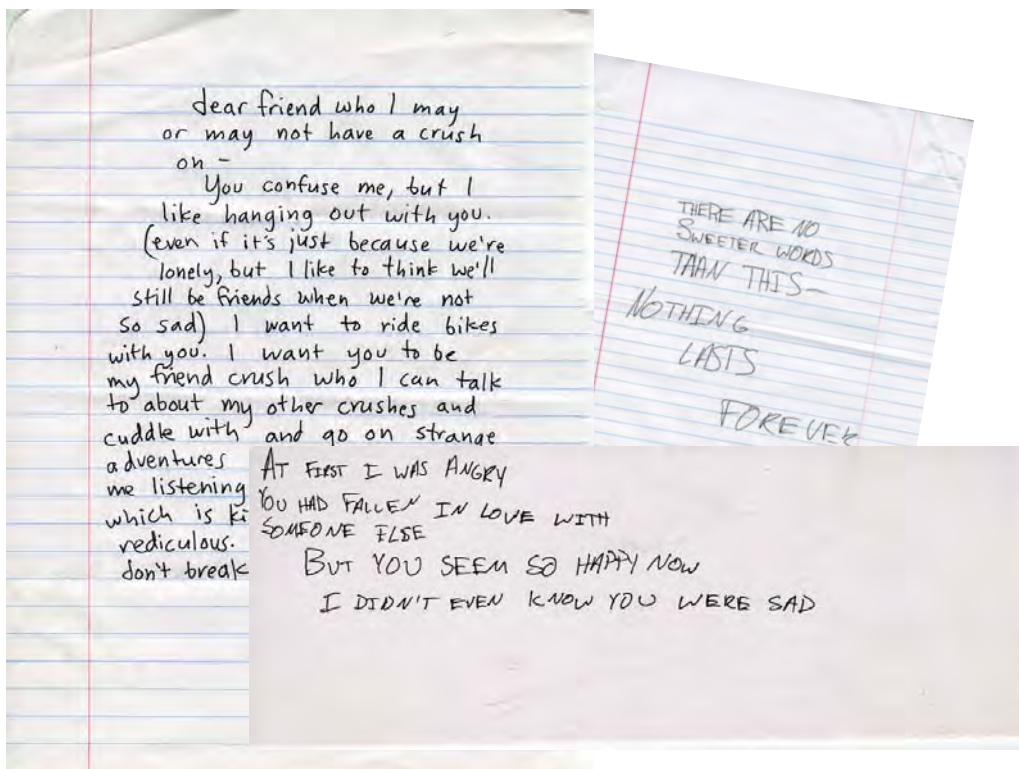 dear friend who I may
or may not have a crush
on -
You confuse me, but I
like hanging out with you.
(even if it's just because we're
lonely, but I like to think we'll
still be friends when we're not
so sad) I want to ride bikes
with you. I want you to be
my friend crush who I can talk
to about my other crushes and
cuddle with and go on strange
adventures
me listening
which is ki
rediculous.
don't break
THERE ARE NO
SWEETER WORDS
THAN THIS—
NOTHING
LASTS
FOREVER
AT FIRST I WAS ANGRY
YOU HAD FALLEN IN LOVE WITH
SOMEONE ELSE
BUT YOU SEEM SO HAPPY NOW
I DIDN'T EVEN KNOW YOU WERE SAD